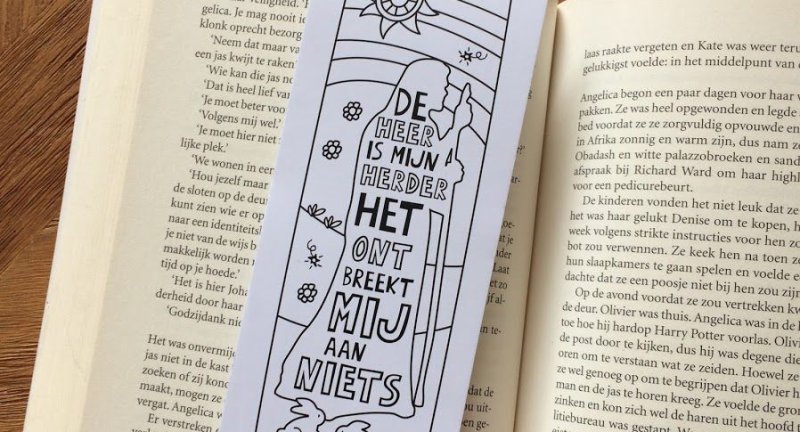 klonk oprecht bezorg
'Neem dat maar va
een jas kwijt te raken'
'Wie kan die jas no
'Dat is heel lief van
'Je moet beter voo
'Volgens mij wel.'
'Je moet hier niet
lijke plek.'
'We wonen in een
'Hou jezelf maar
de sloten op de deu
kunt zien wie er op
naar een identiteits
je niet van de wijs b
makkelijk worden
tijd op je hoede.'
'Het is hier Joha
derheid door haar
'Godzijdank nie
Het was onvermij
jas niet in de kast
zoeken of zij kon
maakt, mogen ze
vergat. Angelica
Er verstreken
DE
HEER
IS MIJN
HERDER
HET
ONT
BREEKT
MIJ
AAN
NIETS
laas raakte vergeten en Kate was weer teru
gelukkigst voelde: in het middelpunt van
Angelica begon een paar dagen voor haar
pakken. Ze was heel opgewonden en legde
bed voordat ze ze zorgvuldig opvouwde en
in Afrika zonnig en warm zijn, dus nam ze
Obadash en witte palazzobroeken en sand
afspraak bij Richard Ward om haar highl
voor een pedicurebeurt.
De kinderen vonden het niet leuk dat ze
het was haar gelukt Denise om te kopen, h
week volgens strikte instructies voor hen zo
bot zou verwennen. Ze keek hen na toen ze
hun slaapkamers te gaan spelen en voelde e
dachte dat ze een poosje niet bij hen zou zijn
Op de avond voordat ze zou vertrekken kw
de deur. Olivier was thuis. Angelica was in de
toe hoe hij hardop Harry Potter voorlas. Olivi
de post door te kijken, dus hij was degene die
oren om te verstaan wat ze zeiden. Hoewel ze
ze wel genoeg op om te begrijpen dat Olivier h
man en de jas te horen kreeg. Ze voelde de gro
zinken en kon zich wel de haren uit het hoofd t
litiebureau was gestapt. W